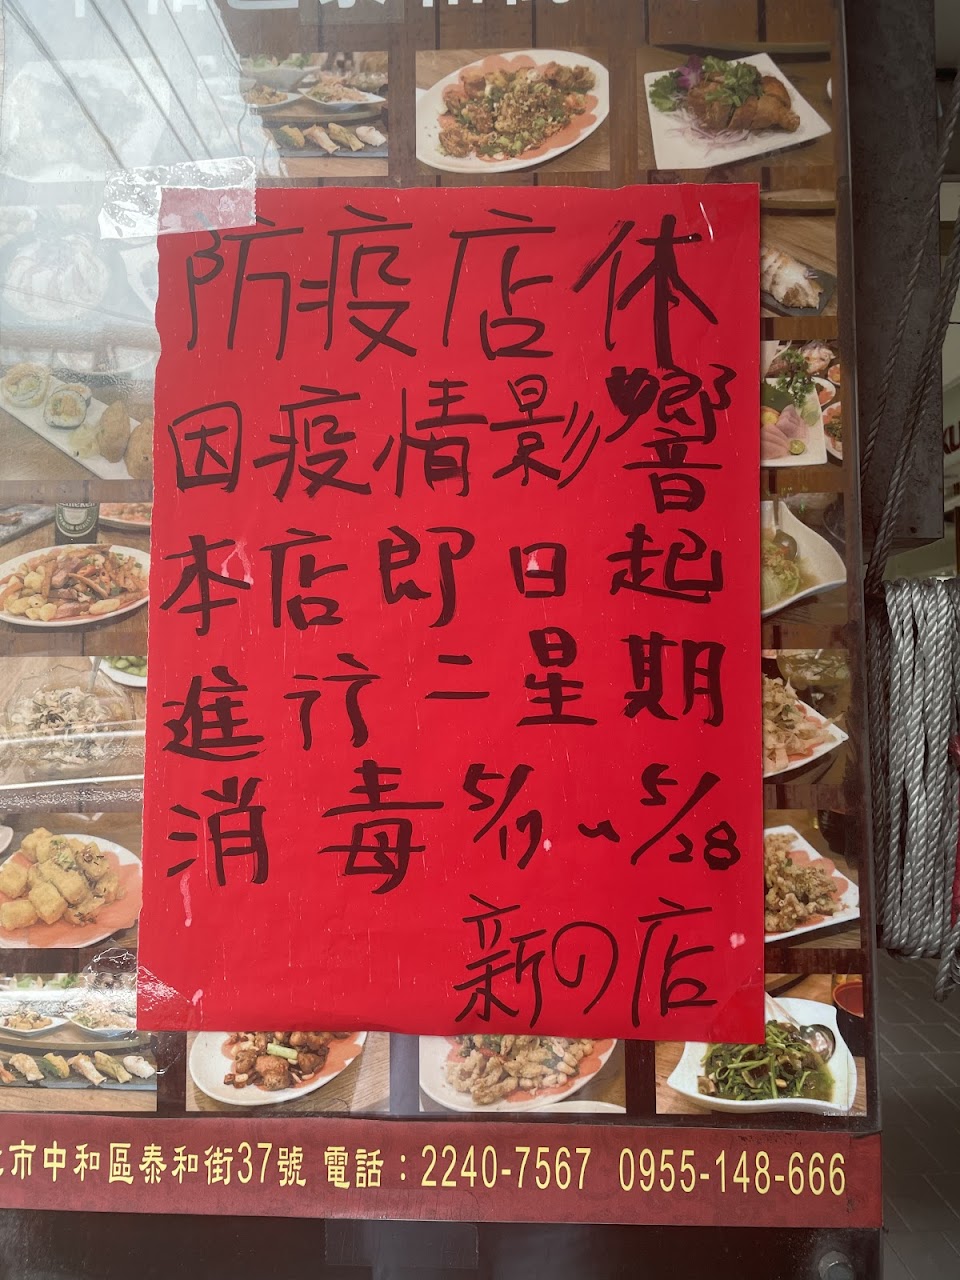 防疫店休
因疫情影響
本店即日起
進行二星期
消毒5/17~5/28
新の店
市中和區泰和街37號 電話：2240-7567 0955-148-666